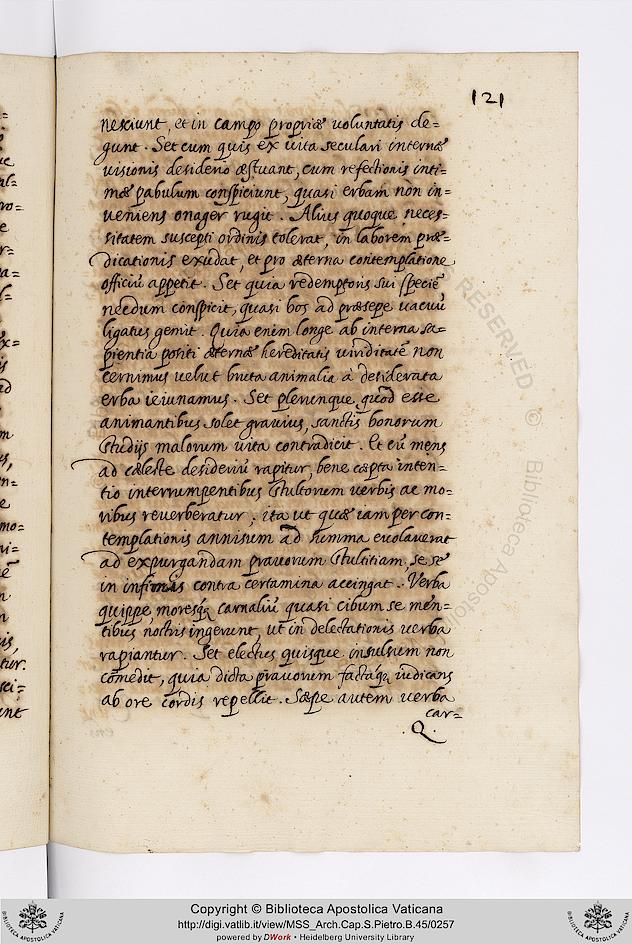 121
nesciunt, et in campo propriæ voluntatis de=
gunt. Set cum quis ex vita seculari internæ
visionis desiderio æstuant, cum refectionis inti=
mæ pabulum conspiciunt, quasi erbam non in=
veniens onager rugit. Alius quoque neces=
sitatem suscepti ordinis tolerat, in laborem præ=
dicationis exudat, et pro æterna contemplatione
officiū appetit. Set quia redemptoris sui speciē
necdum conspicit, quasi bos ad præsepe vacuū
ligatus gemit. Quia enim longe ab interna sa=
pientia positi æternæ hereditatis viriditatē non
cernimus velut bruta animalia à desiderata
erba ieiunamus. Set plerunque, quod esse
animantibus solet gravius, sanctis bonorum
studijs malorum vita contradicit. Et cū mens
ad cæleste desideriū rapitur, bene cœpta inten=
tio interrumpentibus stultorum verbis ac mo=
ribus reverberatur, ita ut quæ iam per con=
templationis annisum ad summa evolaverat
ad expurgandam pravorum stultitiam, se se
in infimis contra certamina accingat. Verba
quippe, moresq; carnaliū quasi cibum se men=
tibus nostris ingerunt, ut in delectationis verba
rapiantur. Set electus quisque insulsum non
comedit, quia dicta pravorum factaq; iudicans
ab ore cordis repellit. Sæpe autem verba
car=
Q.
RESERVED © Biblioteca Aposto
Copyright © Biblioteca Apostolica Vaticana
http://digi.vatlib.it/view/MSS_Arch.Cap.S.Pietro.B.45/0257
powered by DWork • Heidelberg University Library